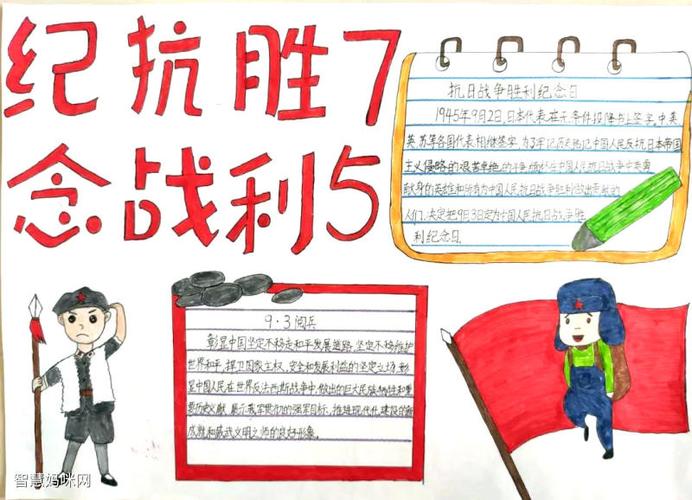 纪抗胜7
念战利5
抗日战争胜利纪念日
1945年9月2日,日本代表在无条件投降书上签字,中美
英苏等各国代表相继签字,为了牢记历史,铭记中国人民反抗日本帝国
主义侵略的艰苦卓绝的斗争,缅怀在中国人民抗日战争中英勇
献身的英雄和所有为中国人民抗日战争胜利做出贡献的
人们,决定把9月3日定为中国人民抗日战争胜
利纪念日。
9·3阅兵
彰显中国坚定不移走和平发展道路,坚定不移维护
世界和平,捍卫国家主权,安全和发展利益的坚定立场,彰
显中国人民在世界反法西斯战争中,做出的巨大民族牺牲和重
要历史贡献,展示我军的强军目标,推进现代化建设的新
成就和威武文明之师的良好形象。
智慧妈咪网